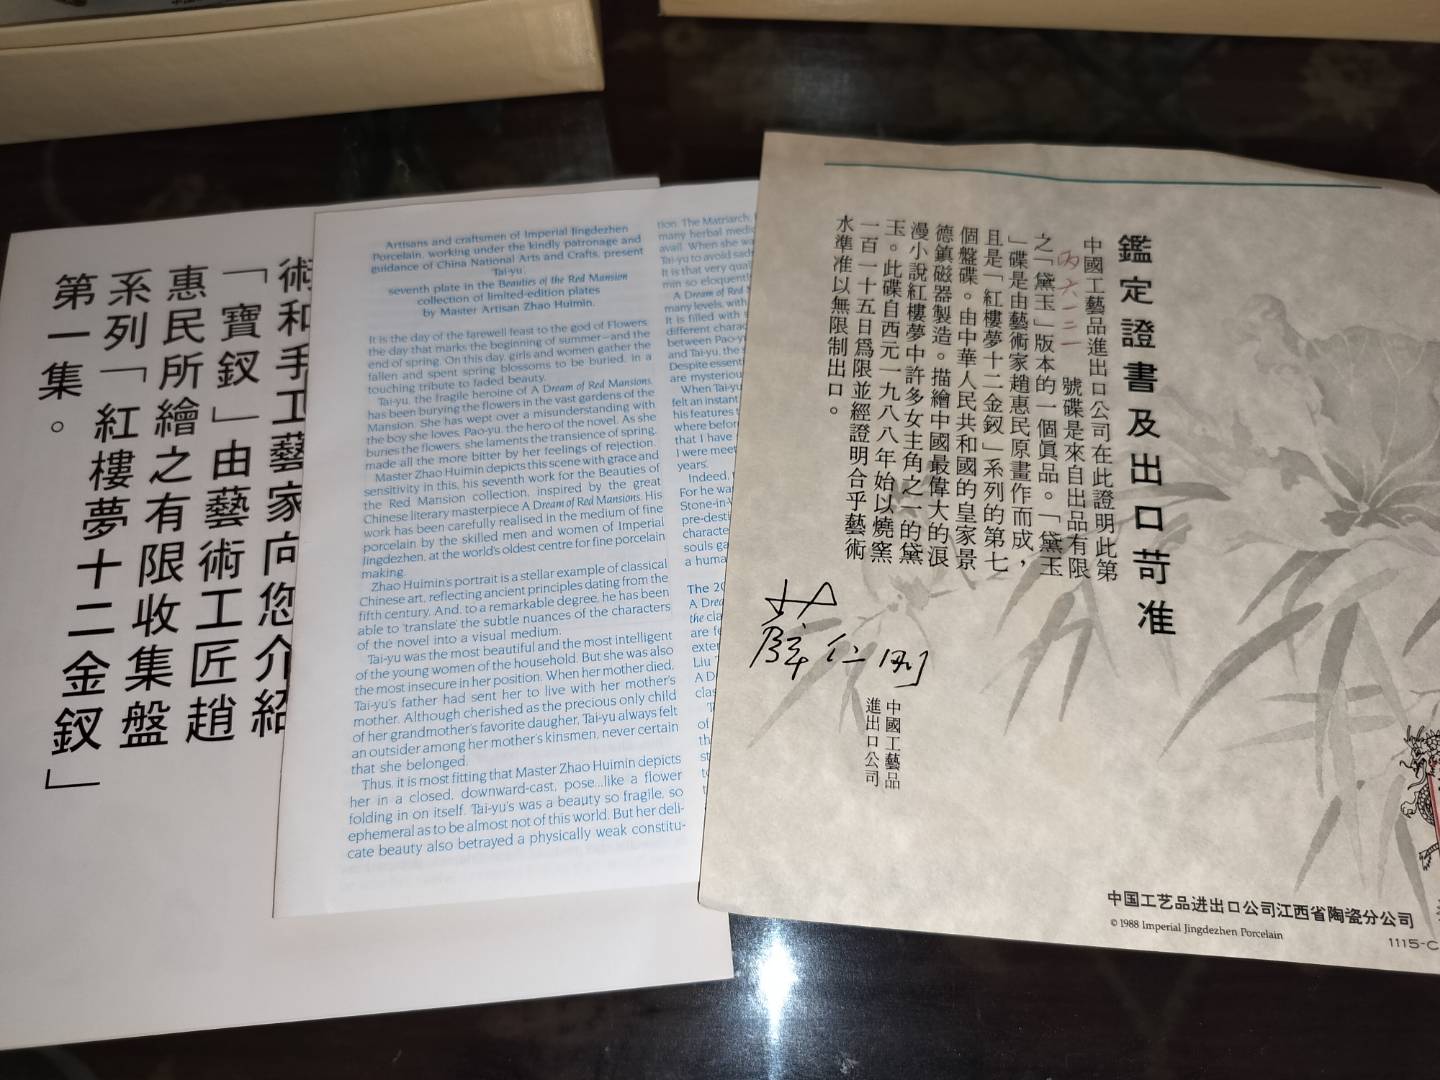 術和手工藝家向您介紹
「寶釵」由藝術工匠趙
惠民所繪之有限收集盤
系列「紅樓夢十二金釵」
第一集。
Artisans and craftsmen of Imperial Jingdezhen
Porcelain, working under the kindly patronage and
guidance of China National Arts and Crafts, present
'Tai-yu',
seventh plate in the Beauties of the Red Mansion
collection of limited-edition plates
by Master Artisan Zhao Huimin.
It is the day of the farewell feast to the god of Flowers,
the day that marks the beginning of summer—and the
end of spring. On this day, girls and women gather the
fallen and spent spring blossoms to be buried. In a
touching tribute to faded beauty.
Tai-yu, the fragile heroine of A Dream of Red Mansions,
has been burying the flowers in the vast gardens of the
Mansion. She has wept over a misunderstanding with
the boy she loves, Pao-yu, the hero of the novel. As she
buries the flowers, she laments the transience of spring,
made all the more bitter by her feelings of rejection.
Master Zhao Huimin depicts this scene with grace and
sensitivity in this, his seventh work for the Beauties of
the Red Mansion collection, inspired by the great
Chinese literary masterpiece A Dream of Red Mansions. His
work has been carefully realised in the medium of fine
porcelain by the skilled men and women of Imperial
Jingdezhen, at the world's oldest centre for fine porcelain
making.
Zhao Huimin's portrait is a stellar example of classical
Chinese art, reflecting ancient principles dating from the
fifth century. And, to a remarkable degree, he has been
able to 'translate' the subtle nuances of the characters
of the novel into a visual medium.
Tai-yu was the most beautiful and the most intelligent
of the young women of the household. But she was also
the most insecure in her position. When her mother died,
Tai-yu's father had sent her to live with her mother's
mother. Although cherished as the precious only child
of her grandmother's favorite daugher, Tai-yu always felt
an outsider among her mother's kinsmen, never certain
that she belonged.
Thus, it is most fitting that Master Zhao Huimin depicts
her in a closed, downward-cast, pose...like a flower
folding in on itself. Tai-yu's was a beauty so fragile, so
ephemeral as to be almost not of this world. But her deli-
cate beauty also betrayed a physically weak constitu-
tion. The Matriarch,
many herbal medic
avail. When she wa
Tai-yu to avoid sad
It is that very qual
min so eloquent
A Dream of Red
many levels, with
It is filled with
different charac
between Pao-y
and Tai-yu, the
Despite essent
are mysterious
When Tai-yu
felt an instant
his features
where before
that I have
I were meet
years.'
Indeed,
For he wa
Stone-in-
pre-desti
character
souls ga
a human
The 20
A Drea
the cla
are fe
exter
Liu
A D
clas
鑑定證書及出口苛准
中國工藝品進出口公司在此證明此第
丙六一三一 號碟是來自出品有限
之「黛玉」版本的一個真品。「黛玉
」碟是由藝術家趙惠民原畫作而成，
且是「紅樓夢十二金釵」系列的第七
個盤碟。由中華人民共和國的皇家景
德鎮磁器製造。描繪中國最偉大的浪
漫小說紅樓夢中許多女主角之一的黛
玉。此碟自西元一九八八年始以燒窯
一百一十五日爲限並經證明合乎藝術
水準准以無限制出口。
薛仁刚
中國工藝品
進出口公司
中国工艺品进出口公司江西省陶瓷分公司
© 1988 Imperial Jingdezhen Porcelain
1115-C